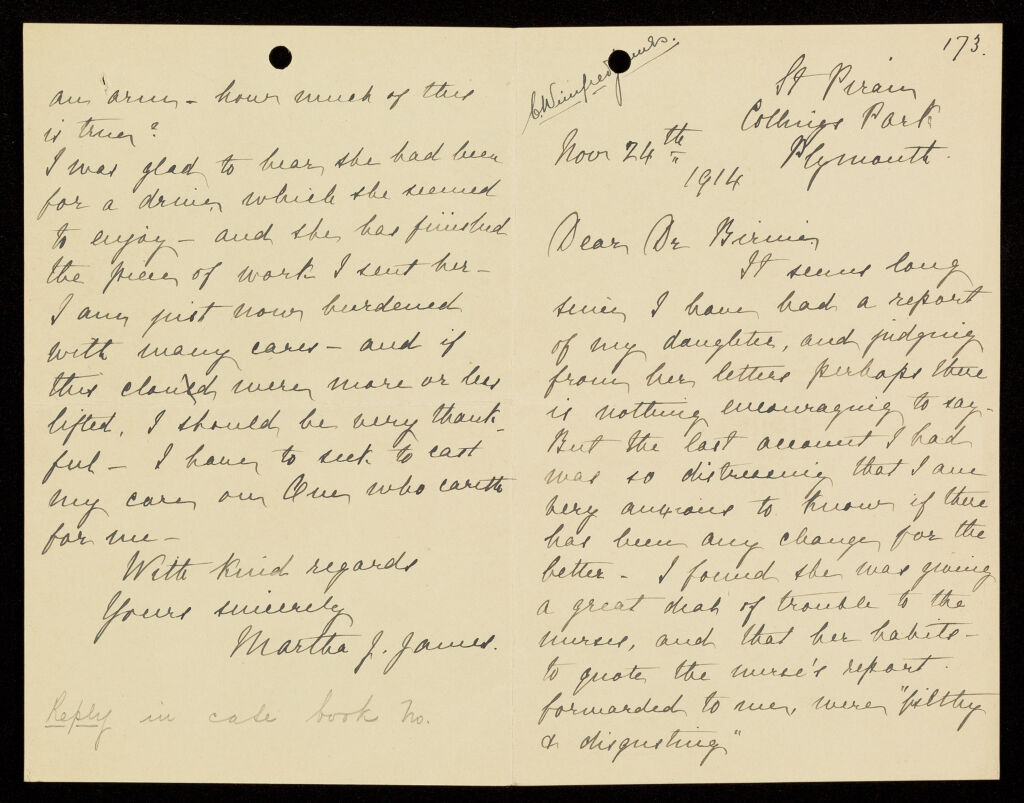 173.
C. Winifred James.
St Pirain
Collings Park
Plymouth.
Nov 24th
1914
Dear Dr Birnie
It seems long
since I have had a report
of my daughter, and judging
from her letters perhaps there
is nothing encouraging to say.
But the last account I had
was so distressing that I am
very anxious to know if there
has been any change for the
better - I found she was giving
a great deal of trouble to the
nurses, and that her habits -
to quote the nurse's report
forwarded to me, were "filthy
& disgusting"
an arm - how much of this
is true?
I was glad to hear she had been
for a drive, which she seemed
to enjoy - and she has finished
the piece of work I sent her -
I am just now burdened
with many cares - and if
this cloud were more or less
lifted, I should be very thank-
ful - I have to seek to cast
my care on One who careth
for me -
With kind regards
Yours sincerely
Martha J. James.
Reply in case book No.